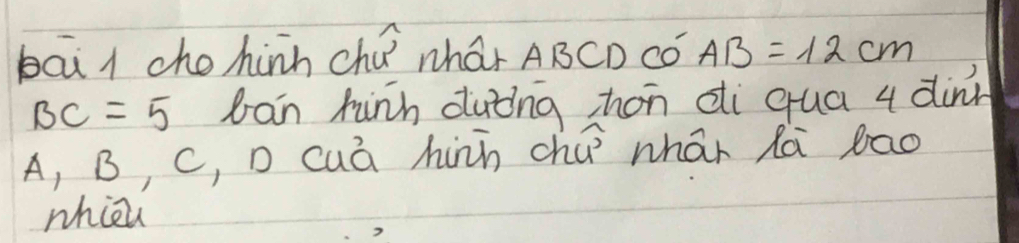 bài 1 cho hình chữ nhật ABCD có AB = 12 cm
BC = 5 bán kính đường tròn đi qua 4 đỉnh
A, B, C, D của hình chữ nhật là bao
nhiêu